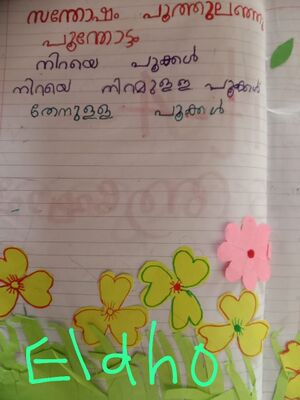 സന്തോഷം പൂത്തുലഞ്ഞു
പൂന്തോട്ടം
നിറയെ പൂക്കൾ
നിറയെ നിറമുള്ള പൂക്കൾ
തേനുള്ള പൂക്കൾ
Eldho